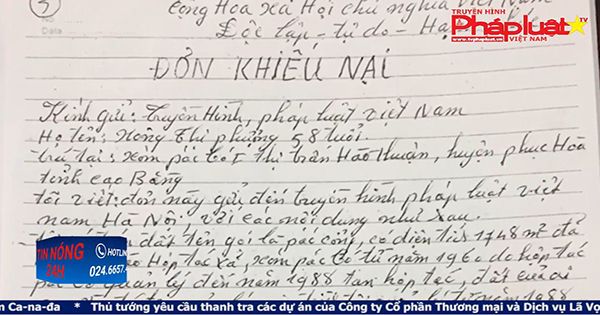 TRUYỀN HÌNH
Phápluật TV
www.phapluat.tv VIỆT NAM
3
Cộng Hòa xã Hội chủ nghĩa Việt Nam
Độc lập - tự do - Hạ
ĐƠN KHIẾU NẠI
Kính gửi: truyền Hình, pháp luật việt Nam
Họ tên: Nông Thị phương 58 tuổi.
trú tại: xóm pác bó I thị trấn Hòa Thuận, huyện phục Hòa
tỉnh cao Bằng
tôi viết đơn này gửi đến truyền hình pháp luật việt
nam Hà Nội, với các nội dung như xau.
đất tên gọi là pác cổng, có diện tích 1748 m² đã
Hợp tác xã, xóm pác bó từ năm 1960 do hợp tác
quản lý đến năm 1988 tan hợp tác, đất của ai
năm 1988
TIN NÓNG
24H
HOTLIN
024.6657.
n Ca-na-đa * Thủ tướng yêu cầu thanh tra các dự án của Công ty Cổ phần Thương mại và Dịch vụ Lã Vọ